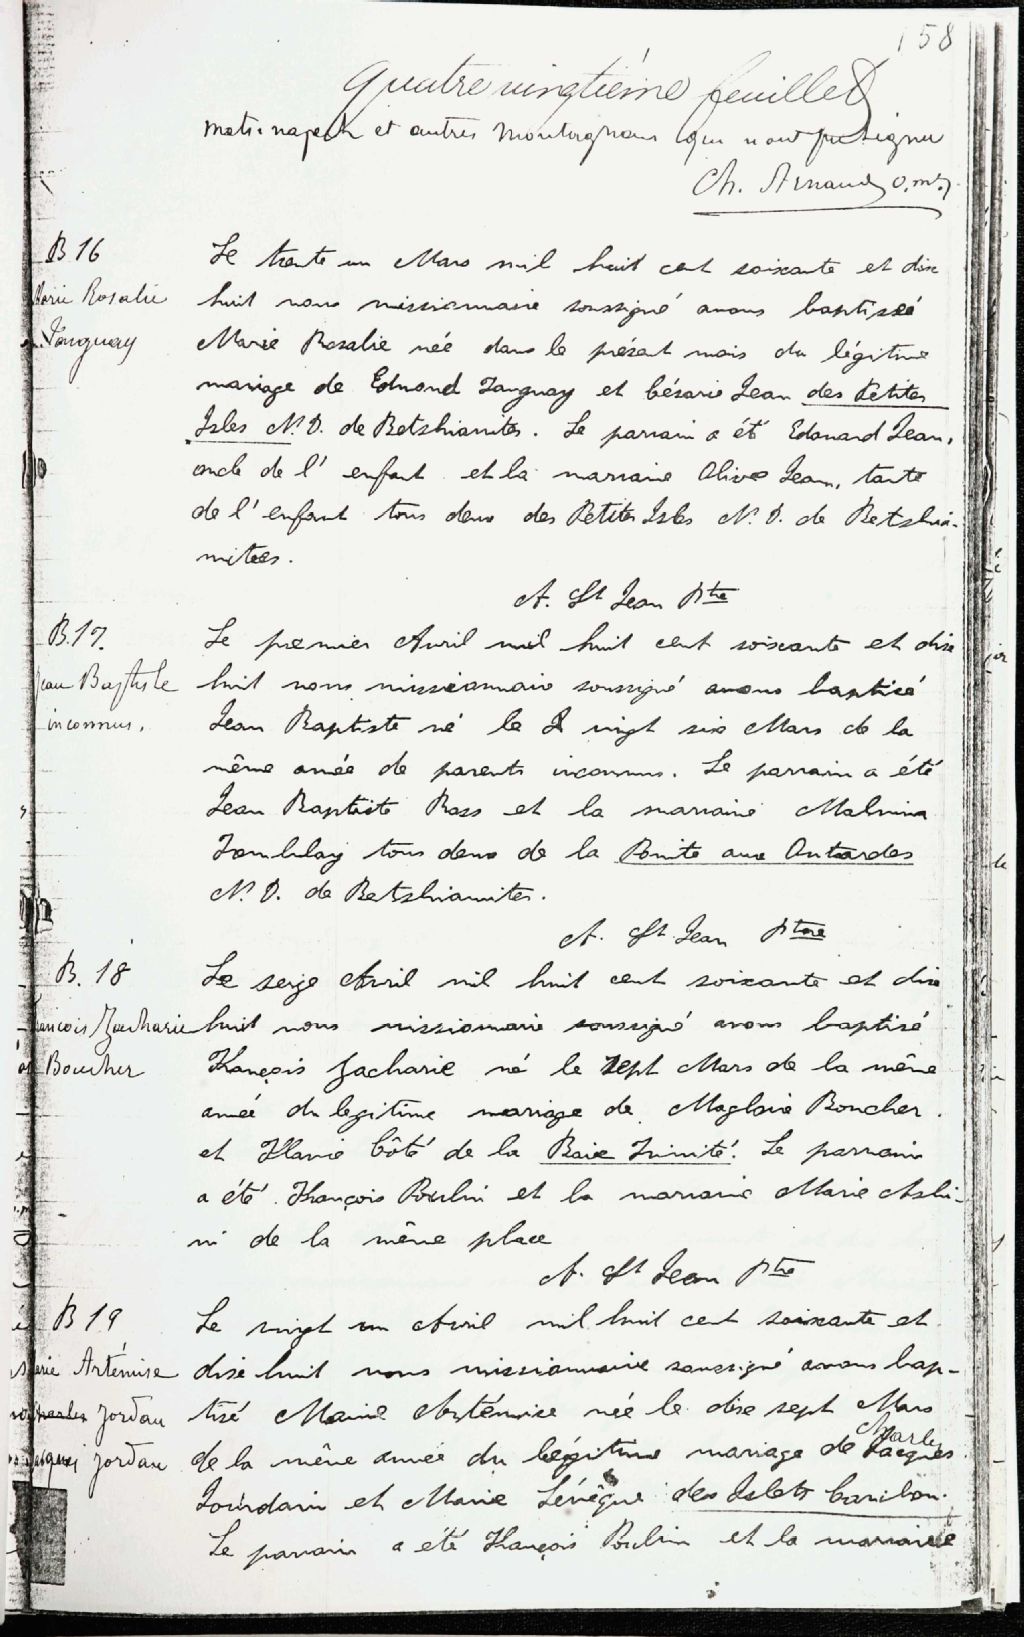 158
Quatre vingtième feuillet
et autres Montagnais qui n'ont pu signer
Ch. Arnaud, o.m.j.
B 16
Marie Rosalie
Tanguay
Le trente un Mars mil huit cent soixante et dix
huit nous missionnaire soussigné avons baptisé
Marie Rosalie née dans le présent mois du légitime
mariage de Edmond Tanguay et Césarie Jean des Petites
Isles N. D. de Betshiamites. Le parrain a été Edouard Jean,
oncle de l'enfant et la marraine Olive Jean, tante
de l'enfant tous deux des Petites Isles N. D. de Betshia-
mites.
A. St Jean Ptre
B. 17.
Jean Baptiste
inconnus.
Le premier Avril mil huit cent soixante et dix
huit nous missionnaire soussigné avons baptisé
Jean Baptiste né le vingt six Mars de la
même année de parents inconnus. Le parrain a été
Jean Baptiste Ross et la marraine Malvina
Tremblay tous deux de la Pointe aux Outardes
N. D. de Betshiamites.
A. St Jean Ptre
B. 18
François Zacharie
Boucher
Le seize Avril mil huit cent soixante et dix
huit nous missionnaire soussigné avons baptisé
François Zacharie né le sept Mars de la même
année du legitime mariage de Magloire Boucher
et Flavie Côté de la Baie Trinité. Le parrain
a été François Poulin et la marraine Marie Ashi-
ni de la même place
A. St Jean Ptre
B 19
Marie Artémise
Charles Jordan
Jacques Jordan
Le vingt un Avril mil huit cent soixante et
dix huit nous missionnaire soussigné avons bap-
tisé Marie Artémise née le dix sept Mars
Charles
de la même année du légitime mariage de Jacques
Jourdain et Marie Lévêque des Islets Caribou.
Le parrain a été François Poulin et la marraine